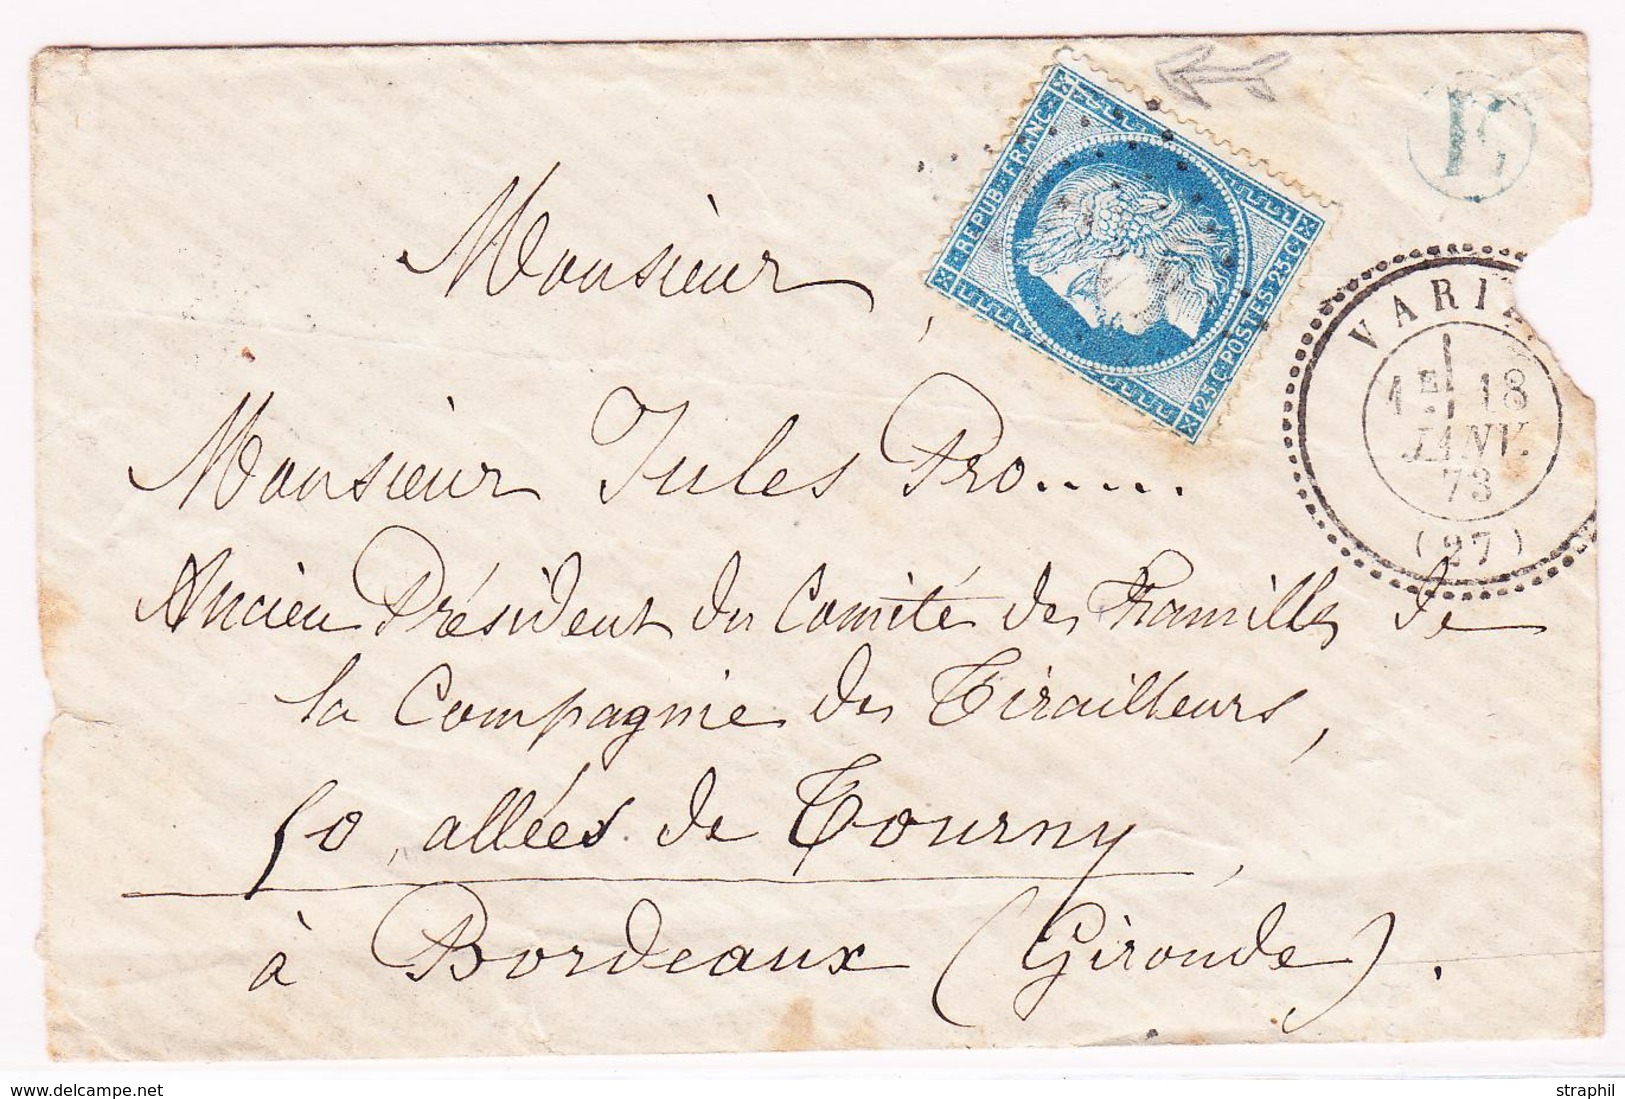 E
REPUB. FRANC.
25 C. POSTES 25 C.
VARI
1E 18
JANV.
73
(27)
Monsieur,
Monsieur Jules Pro.....
Ancien Président du Comité des Familles de
la Compagnie des Tirailleurs,
50, allées de Tourny,
à Bordeaux (Gironde).
delcampe.net
straphil